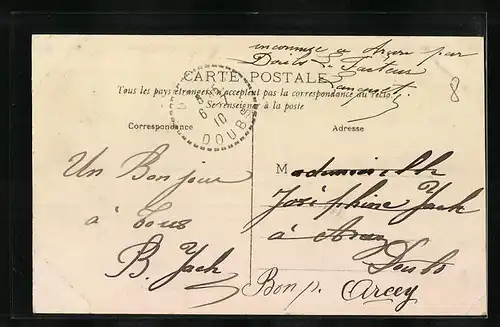 inconnue à Arcey par
Doubs Le facteur
CARTE POSTALE
Tous les pays étrangers n'acceptent pas la correspondance au recto.
Se renseigner à la poste
6
10
DOUBS
8
Correspondance
Adresse
Un Bonjour
à tous
B. Jach
Mademoiselle
Joséphine Jach
à Arcey
Doubs
Bon p. Arcey